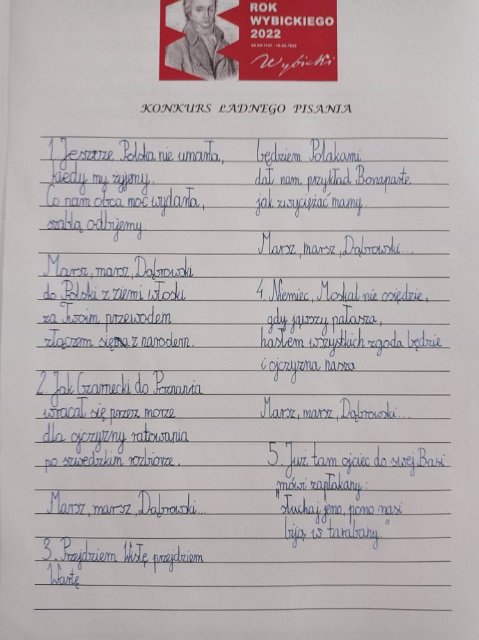 ROK
WYBICKIEGO
2022
Wybicki
KONKURS ŁADNEGO PISANIA
1. Jeszcze Polska nie umarła,
kiedy my żyjemy.
Co nam obca moc wydarła,
szablą odbijemy.
Marsz, marsz, Dąbrowski
do Polski z ziemi włoski
za Twoim przewodem
złączem się z narodem.
2. Jak Czarnecki do Poznania
wracał się przez morze
dla ojczyzny ratowania
po szwedzkim rozbiorze.
Marsz, marsz, Dąbrowski...
3. Przejdziem Wisłę przejdziem
Wartę
będziem Polakami
dał nam przykład Bonaparte
jak zwyciężać mamy.
Marsz, marsz, Dąbrowski...
4. Niemiec, Moskal nie osiędzie,
gdy jąwszy pałasza,
hasłem wszystkich zgoda będzie
i ojczyzna nasza
Marsz, marsz, Dąbrowski...
5. Już tam ojciec do swej Basi
mówi zapłakany:
"słuchaj jeno, pono nasi
biją w tarabany."